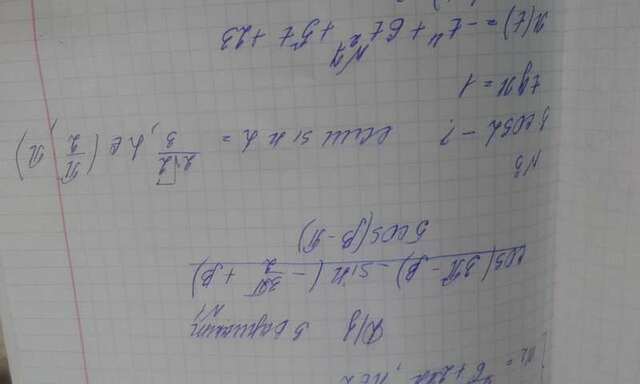 Д/з 3 вариант
№1
cos(3π - β) - sin(-3π/2 + β)
5cos(β - π)
№3
3cosα - ? если sin α = 2√2/3, α ∈ (π/2, π)
tgx = 1
№7
x(t) = -t⁴ + 6t² + 5t + 23